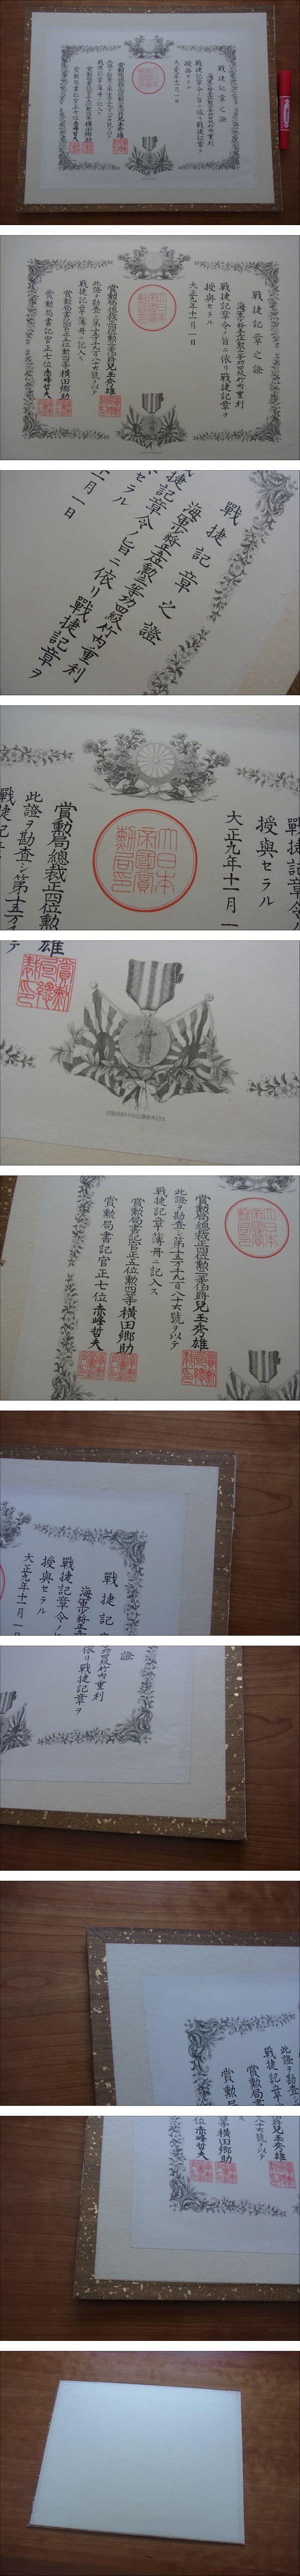 戰捷記章之證
海軍少將正五位勲二等功四級竹内重利
戰捷記章令ノ旨ニ依リ戰捷記章ヲ
授與セラル
大正九年十一月一日
大日本
帝國賞
勲局印
賞勲局總裁正四位勲二等伯爵兒玉秀雄
此證ヲ勘査シ第十五万千九百八十六號ヲ以テ
戰捷記章簿冊ニ記入ス
賞勲局書記官正五位勲四等横田郷助
賞勲局書記官正七位赤峰哲夫